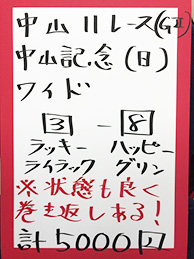 中山11レース(GⅡ)
中山記念(日)
ワイド
3-8
ラッキー ハッピー
ライラック グリン
※状態も良く
巻き返しある!
計5000円